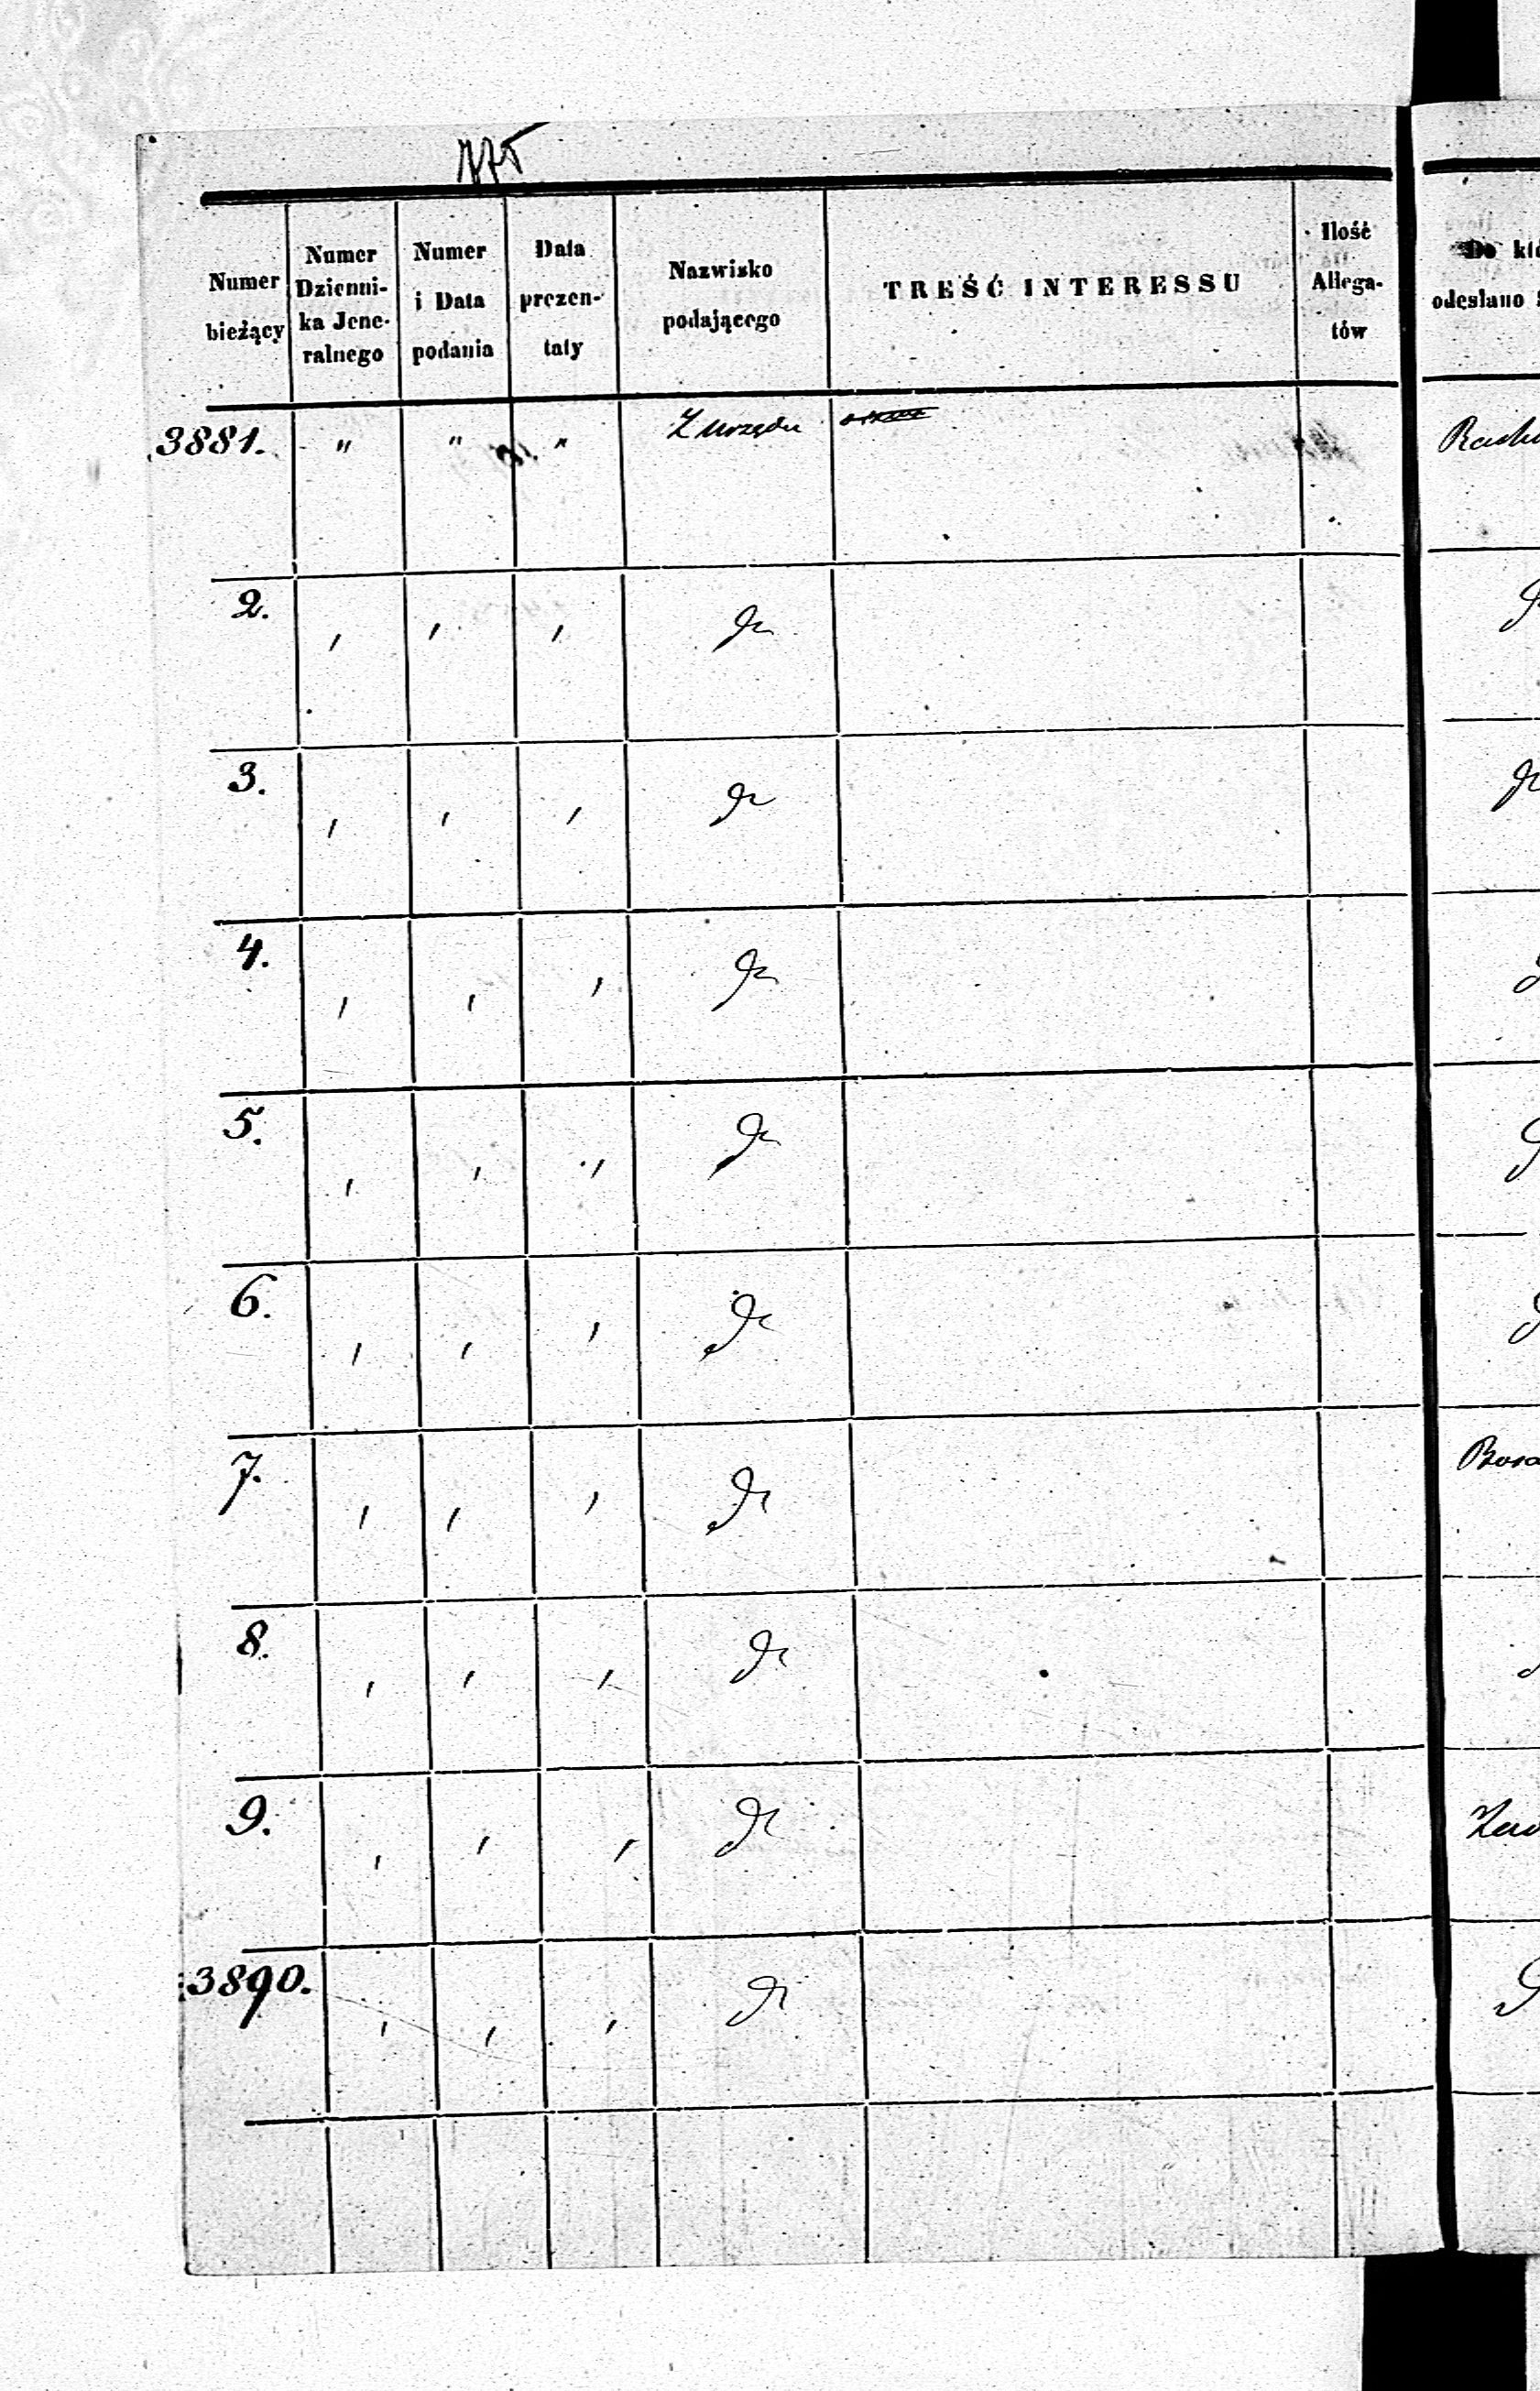 775
Numer bieżący
Numer Dzienni-ka Jene-ralnego
Numer i Data podania
Data prezen-taty
Nazwisko podającego
TREŚĆ INTERESSU
Ilość Allega-tów
odesłano
3881. " " " Z urzędu
2. , , , dº
3. , , , dº
4. , , , dº
5. , , , dº
6. , , , dº
7. , , , dº
8. , , , dº
9. , , , dº
3890. , , , dº